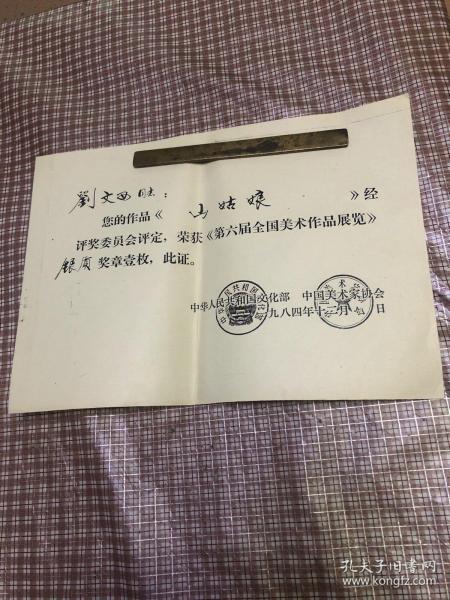 劉文西同志：
您的作品《山姑娘》经
评奖委员会评定，荣获《第六届全国美术作品展览》
银质奖章壹枚，此证。
中华人民共和国文化部 中国美术家协会
一九八四年十二月 日
孔夫子旧书网
www.kongfz.com